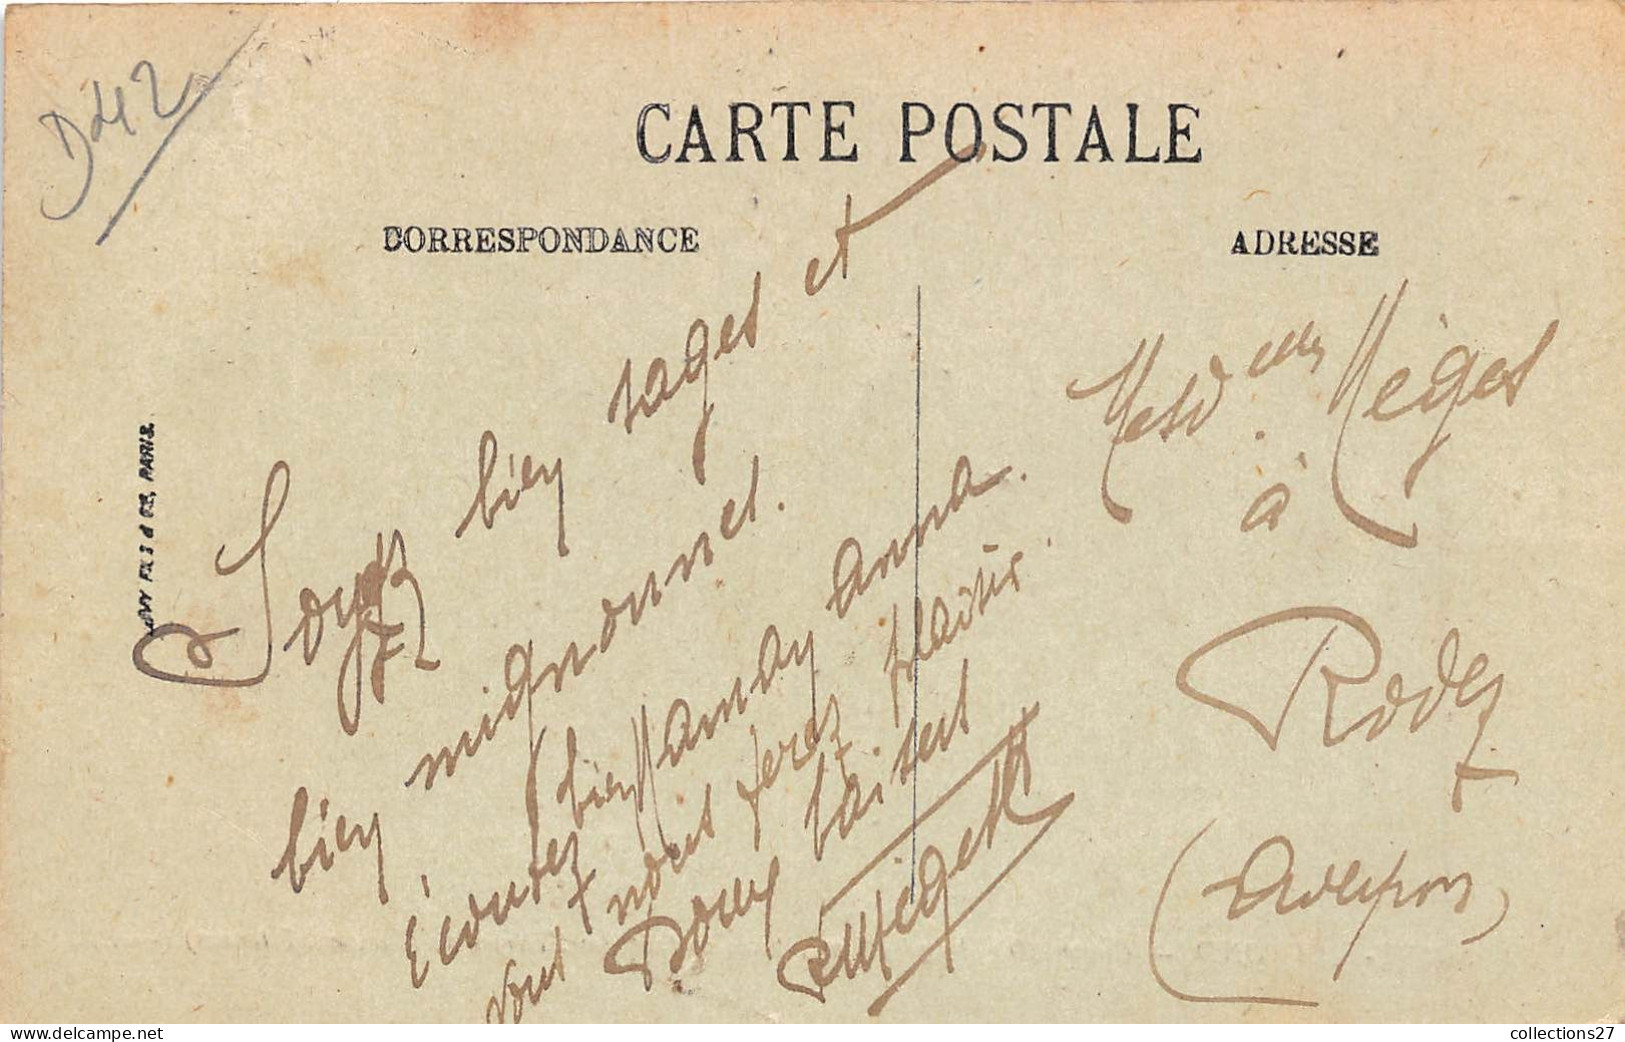 Dd42
CARTE POSTALE
CORRESPONDANCE
ADRESSE
LÉVY FILS & CIE, PARIS.
Soyez bien sages et
bien mignonnes.
Écoutez bien Maman Anna.
Vous nous ferez plaisir.
Doux baisers
Mesd.elles Mèges
à
Rodez
(Aveyron)
collections27